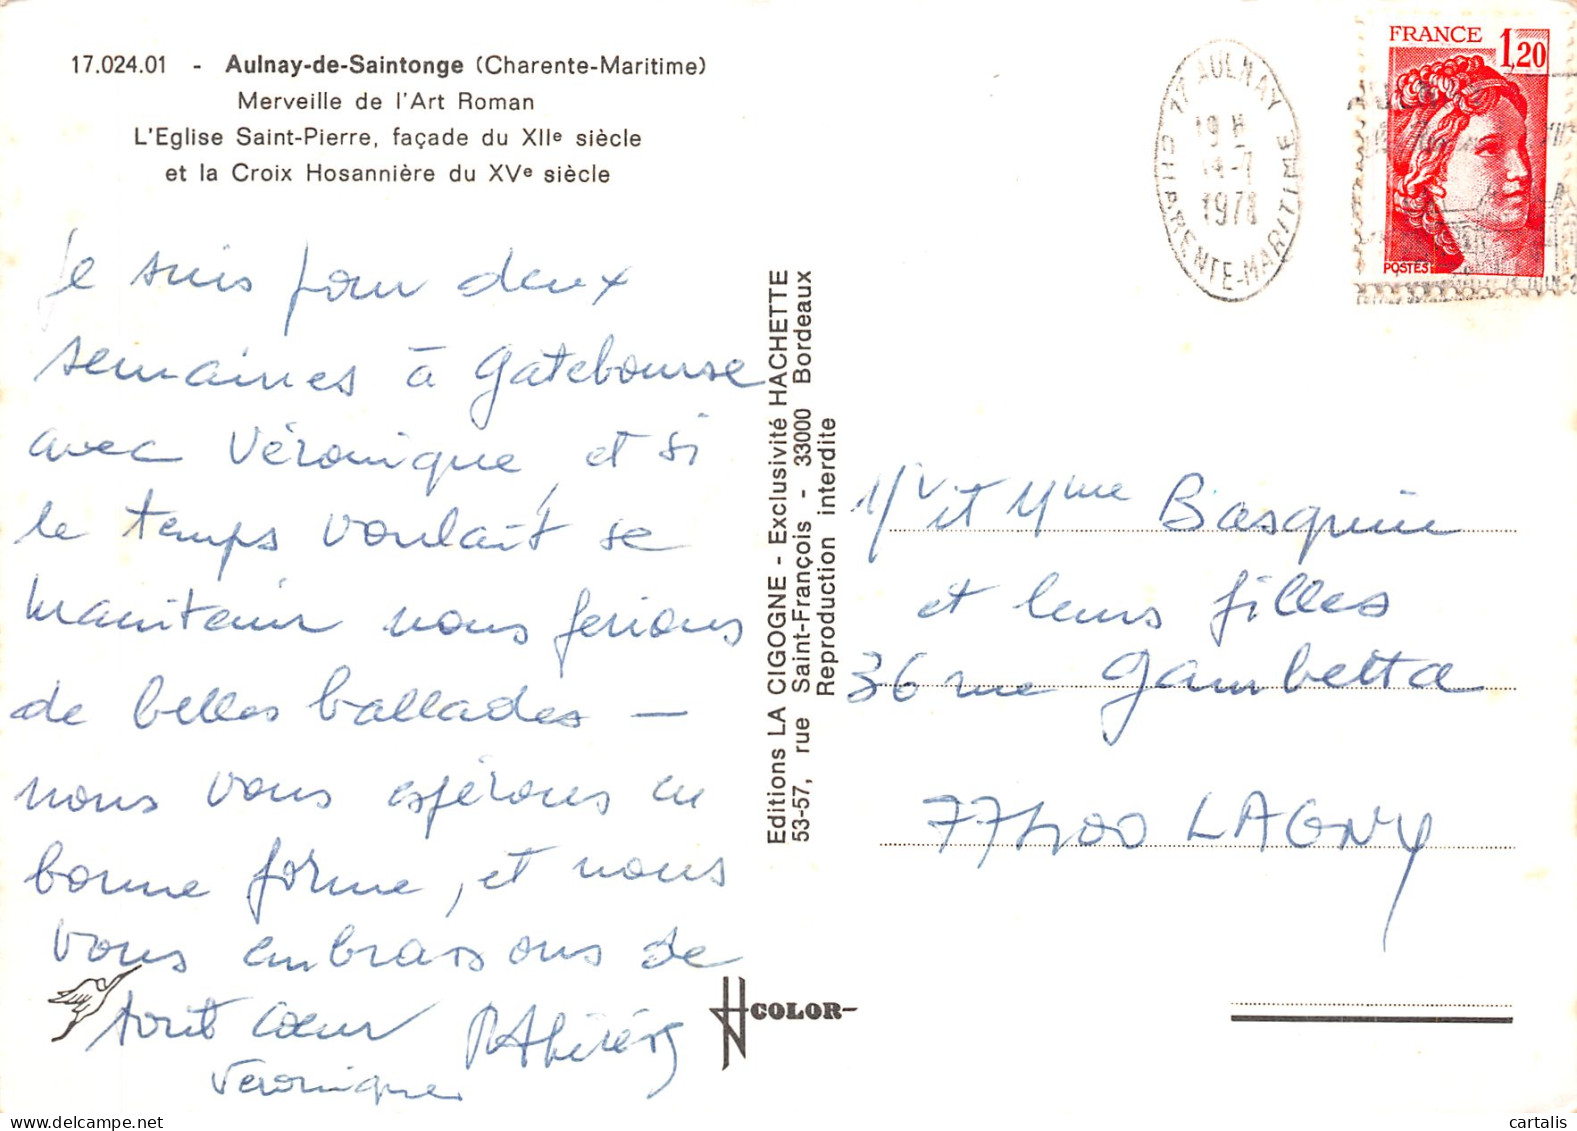 17.024.01 - Aulnay-de-Saintonge (Charente-Maritime)
Merveille de l'Art Roman
L'Eglise Saint-Pierre, façade du XIIe siècle
et la Croix Hosannière du XVe siècle
Je suis pour deux
semaines à Gatebourse
avec Véronique, et si
le temps voulait se
maintenir nous ferions
de belles ballades —
nous vous espérons en
bonne forme, et nous
vous embrassons de
tout cœur
Veronique
Editions LA CIGOGNE - Exclusivité HACHETTE
53-57, rue Saint-François - 33000 Bordeaux
Reproduction interdite
COLOR
17 AULNAY
19 H
14-7
1978
CHARENTE-MARITIME
FRANCE 1,20
POSTES
Mr et Mme Basquin
et leurs filles
36 rue Gambetta
77400 LAGNY
cartalis